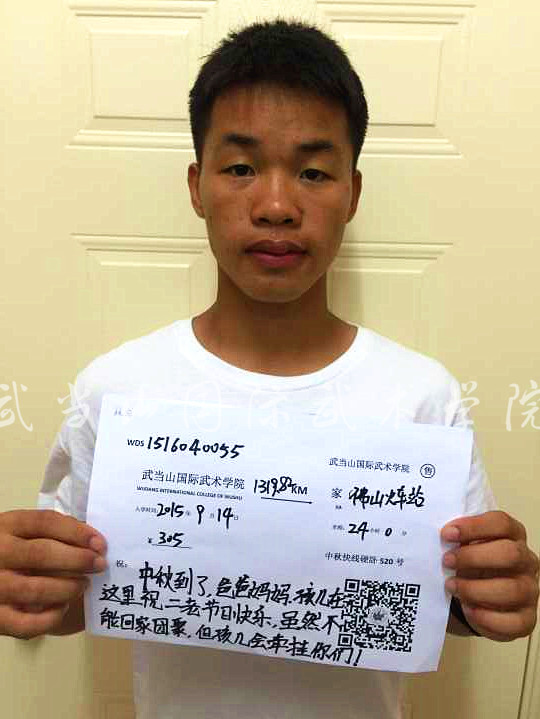 武当山国际武术学院
WDS 1516040055
武当山国际武术学院 售
武当山国际武术学院 1319.82KM 家 佛山火车站
WUDANG INTERNATIONAL COLLEGE OF WUSHU
入学时间 2015年9月14日 全程:24小时0分
¥305 中秋快线硬卧 520号
祝:中秋到了,爸爸妈妈,孩儿在
这里祝二老节日快乐,虽然不
能回家团聚,但孩儿会牵挂你们!